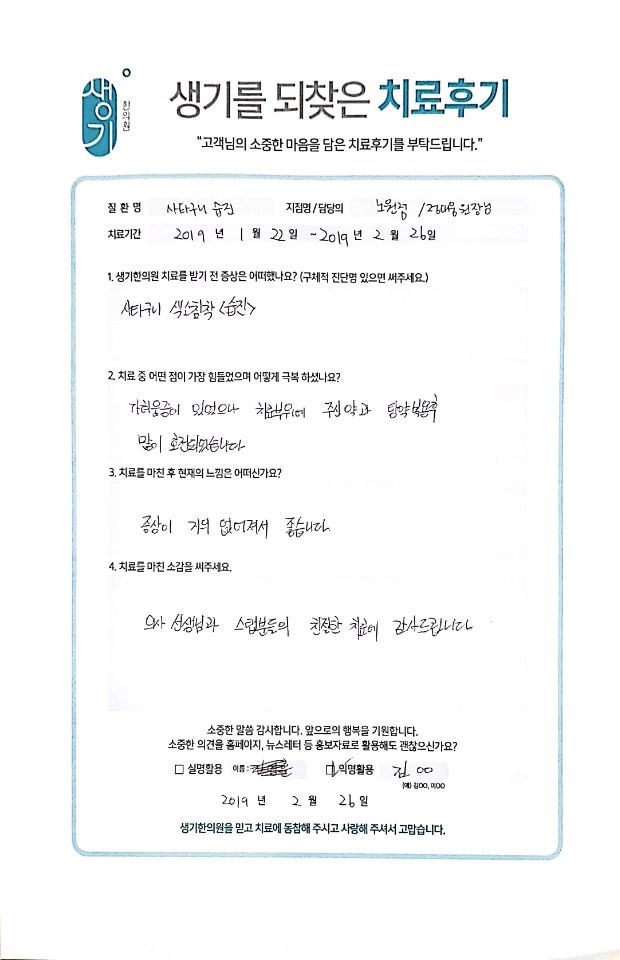 생기
한의원
생기를 되찾은 치료후기
"고객님의 소중한 마음을 담은 치료후기를 부탁드립니다."
질 환 명 사타구니 습진 지점명 / 담당의 노원점 / 원장님
치료기간 2019 년 1 월 22 일 ~ 2019 년 2 월 26 일
1. 생기한의원 치료를 받기 전 증상은 어떠했나요? (구체적 진단명 있으면 써주세요.)
사타구니 색소침착 <습진>
2. 치료 중 어떤 점이 가장 힘들었으며 어떻게 극복 하셨나요?
가려움증이 있었으나 치료부위에 약과 탕약복용후
많이 호전되었습니다
3. 치료를 마친 후 현재의 느낌은 어떠신가요?
증상이 거의 없어져서 좋습니다.
4. 치료를 마친 소감을 써주세요.
의사 선생님과 스탭분들의 친절한 치료에 감사드립니다
소중한 말씀 감사합니다. 앞으로의 행복을 기원합니다.
소중한 의견을 홈페이지, 뉴스레터 등 홍보자료로 활용해도 괜찮으신가요?
□ 실명활용 이름 : □ 익명활용 김 00
(예) 김OO, 이OO
2019 년 2 월 26 일
생기한의원을 믿고 치료에 동참해 주시고 사랑해 주셔서 고맙습니다.